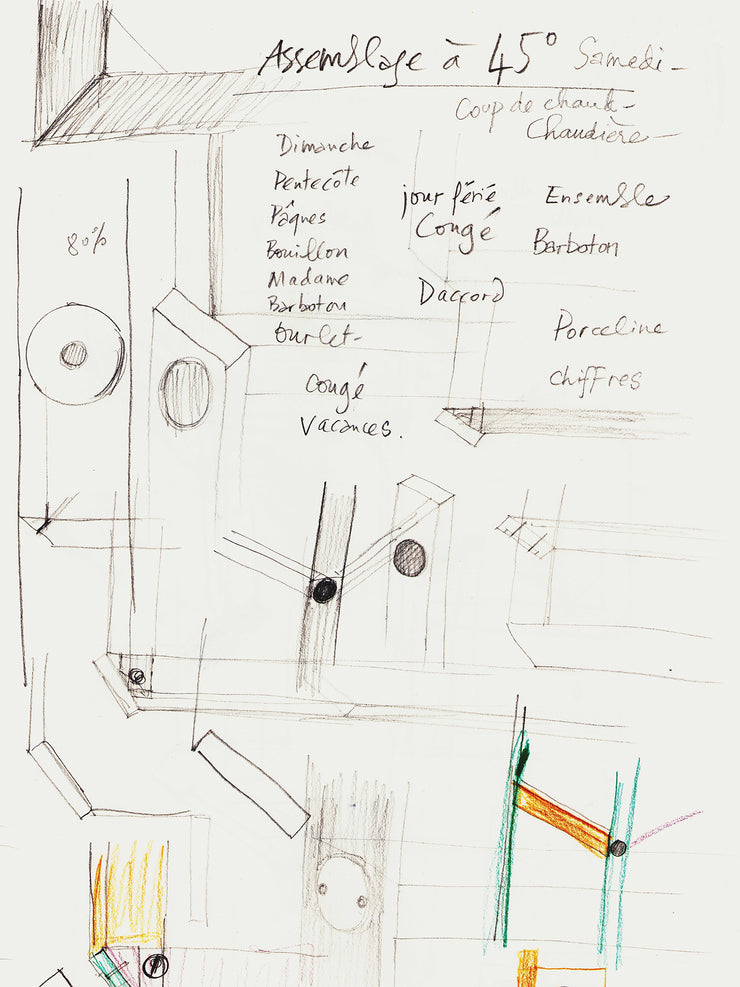 Assemblage à 45° Samedi -
Coup de chauk -
Chaudière -
Dimanche
Pentecôte
Pâques
Bouillon
Madame
Barboton
Ourlet -
Congé
Vacances.
jour férié
Congé
Daccord
Ensemble
Barboton
Porceline
chiffres
80%